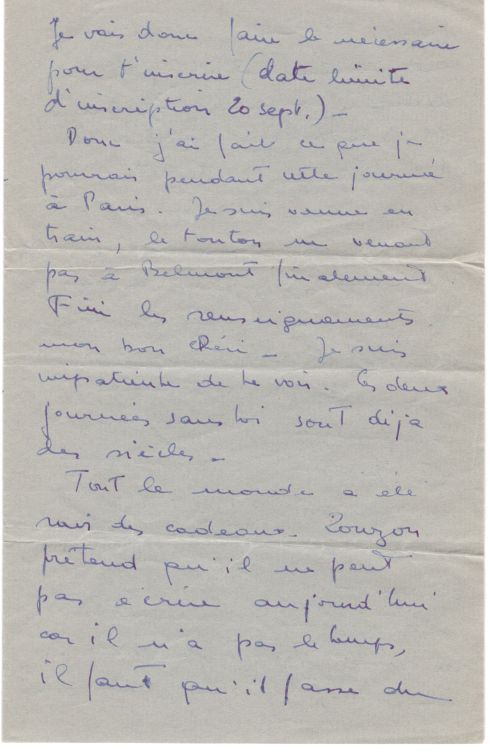 Je vais donc faire le nécessaire
pour t'inscrire (date limite
d'inscription 20 sept.) -
Donc j'ai fait ce que je
pouvais pendant cette journée
à Paris. Je suis venue en
train, le tonton ne venant
pas à Belmont finalement.
Fini les renseignements
mon bon chéri - Je suis
impatiente de te voir. Ces deux
journées sans toi sont déjà
des siècles -
Tout le monde a été
ravi des cadeaux. Zouzou
prétend qu'il ne peut
pas écrire aujourd'hui
car il n'a pas le temps,
il faut qu'il fasse du